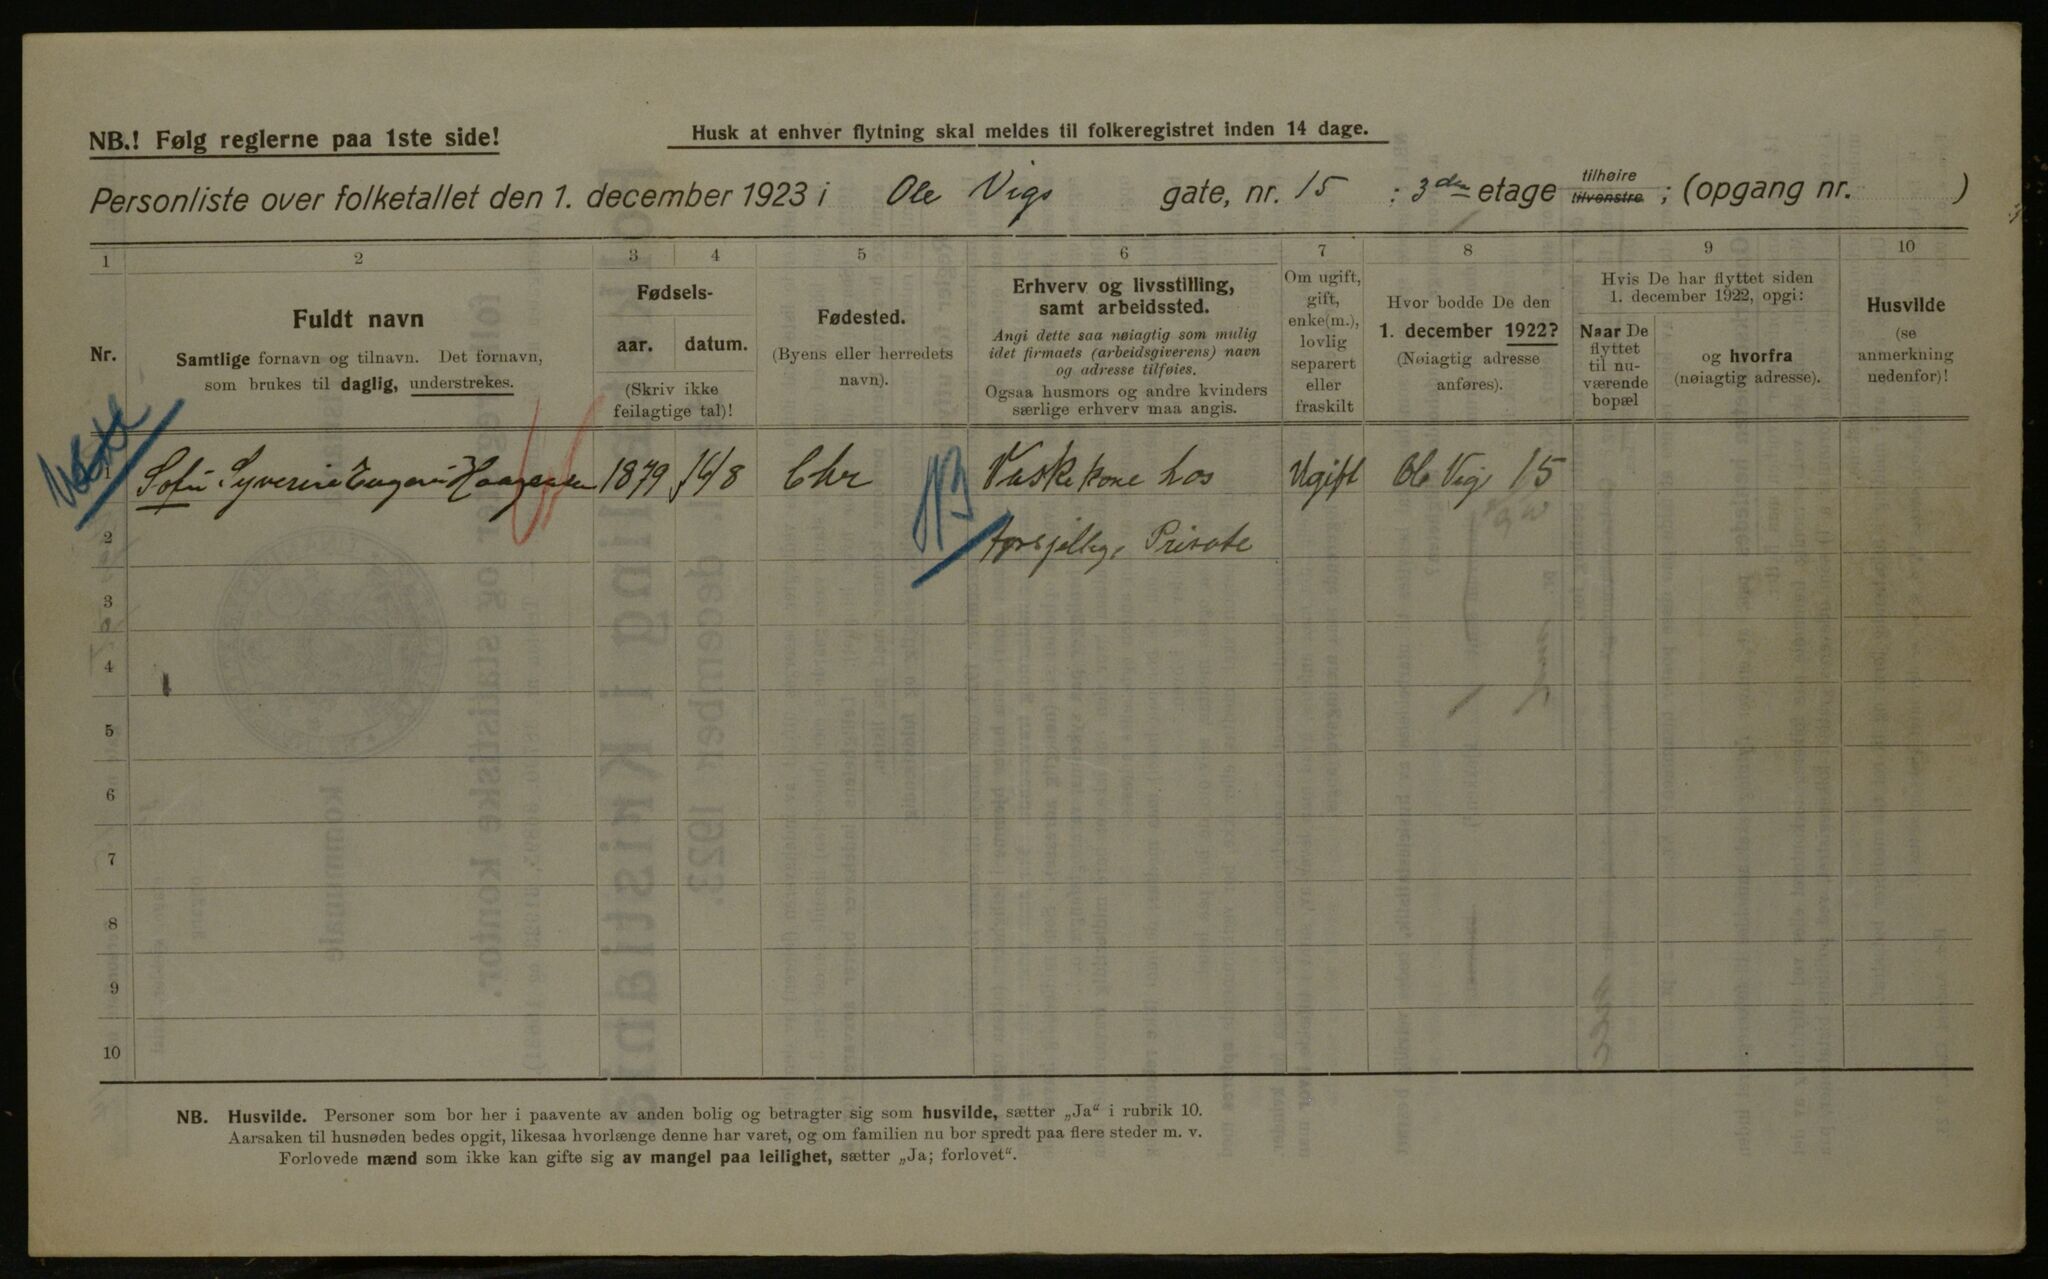 NB.! Følg reglerne paa 1ste side!
Husk at enhver flytning skal meldes til folkeregistret inden 14 dage.
Personliste over folketallet den 1. december 1923 i Ole Vigs gate, nr. 15 : 3den etage tilhøire tilvenstre ; (opgang nr. )
1 2 3 4 5 6 7 8 9 10
Nr.
Fuldt navn
Samtlige fornavn og tilnavn. Det fornavn,
som brukes til daglig, understrekes.
Fødsels-
aar. datum.
(Skriv ikke
feilagtige tal)!
Fødested.
(Byens eller herredets
navn).
Erhverv og livsstilling,
samt arbeidssted.
Angi dette saa nøiagtig som mulig
idet firmaets (arbeidsgiverens) navn
og adresse tilføies.
Ogsaa husmors og andre kvinders
særlige erhverv maa angis.
Om ugift,
gift,
enke(m.),
lovlig
separert
eller
fraskilt
Hvor bodde De den
1. december 1922?
(Nøiagtig adresse
anføres).
Hvis De har flyttet siden
1. december 1922, opgi:
Naar De
flyttet
til nu-
værende
bopæl
og hvorfra
(nøiagtig adresse).
Husvilde
(se
anmerkning
nedenfor)!
1 Sofie Syverine Eugenie Haagensen 1879 14/8 Chr Vaskekone hos Ugift Ole Vigs 15
2 forsjellige Private
3
4
5
6
7
8
9
10
NB. Husvilde. Personer som bor her i paavente av anden bolig og betragter sig som husvilde, sætter „Ja“ i rubrik 10.
Aarsaken til husnøden bedes opgit, likesaa hvorlænge denne har varet, og om familien nu bor spredt paa flere steder m. v.
Forlovede mænd som ikke kan gifte sig av mangel paa leilighet, sætter „Ja; forlovet“.